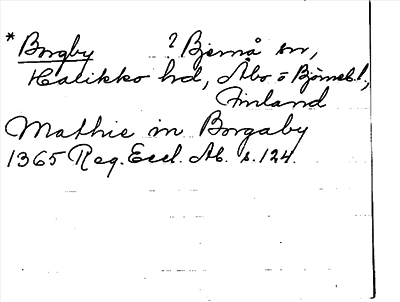 *Borgby ? Bjernå sn,
Halikko hd, Åbo o Björneb. l.,
Finland
Mathie in Borgaby
1365 Reg. Eccl. Ab. s. 124.